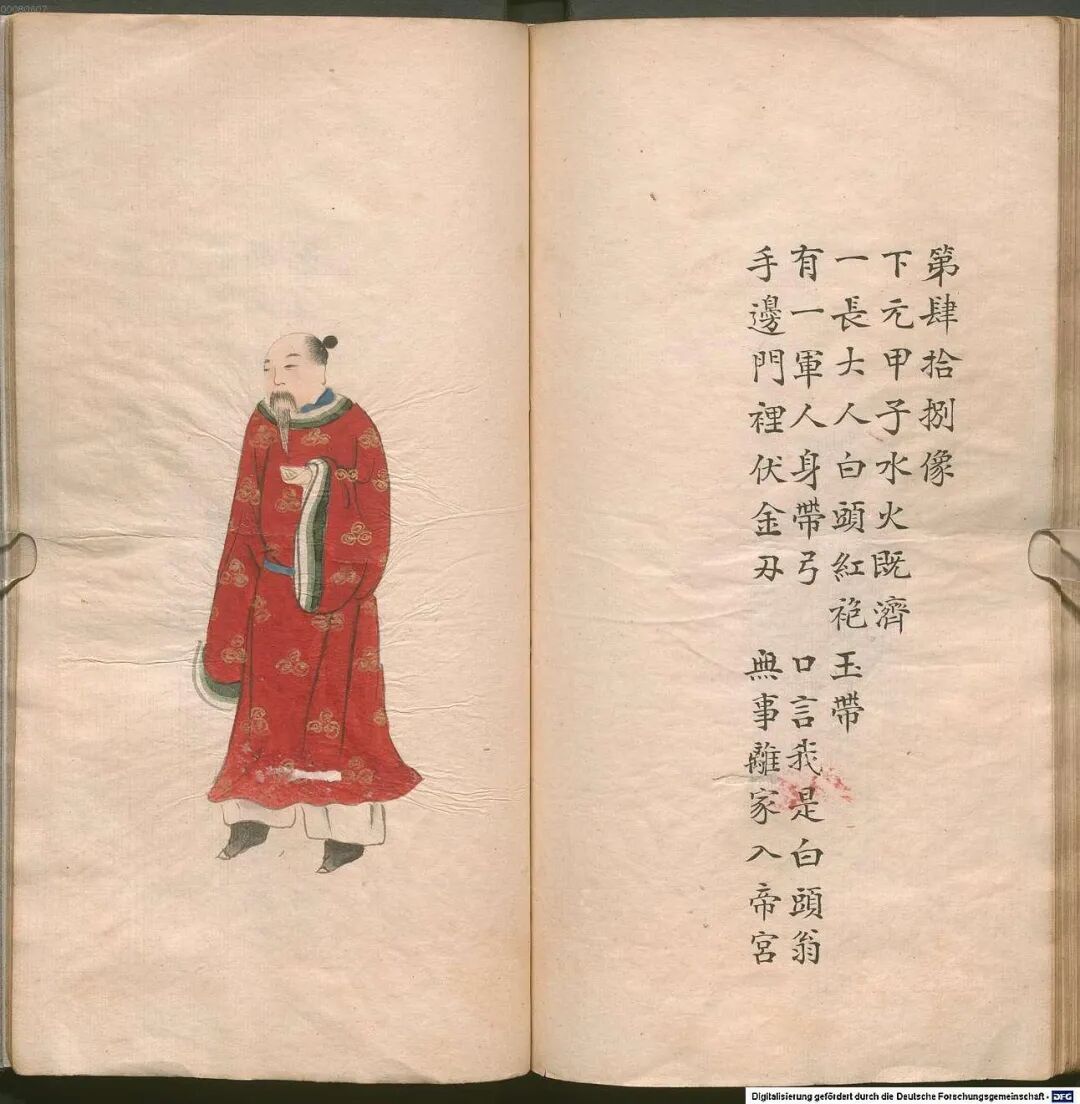 第肆拾捌像
下元甲子水火既濟
一長大人白頭紅袍玉帶
有一軍人身帶弓 口言我是白頭翁
手邊門裡伏金刃 無事離家入帝宮
Digitalisierung gefördert durch die Deutsche Forschungsgemeinschaft - DFG